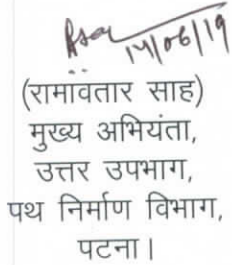 14/06/19
(रामावतार साह)
मुख्य अभियंता,
उत्तर उपभाग,
पथ निर्माण विभाग,
पटना।